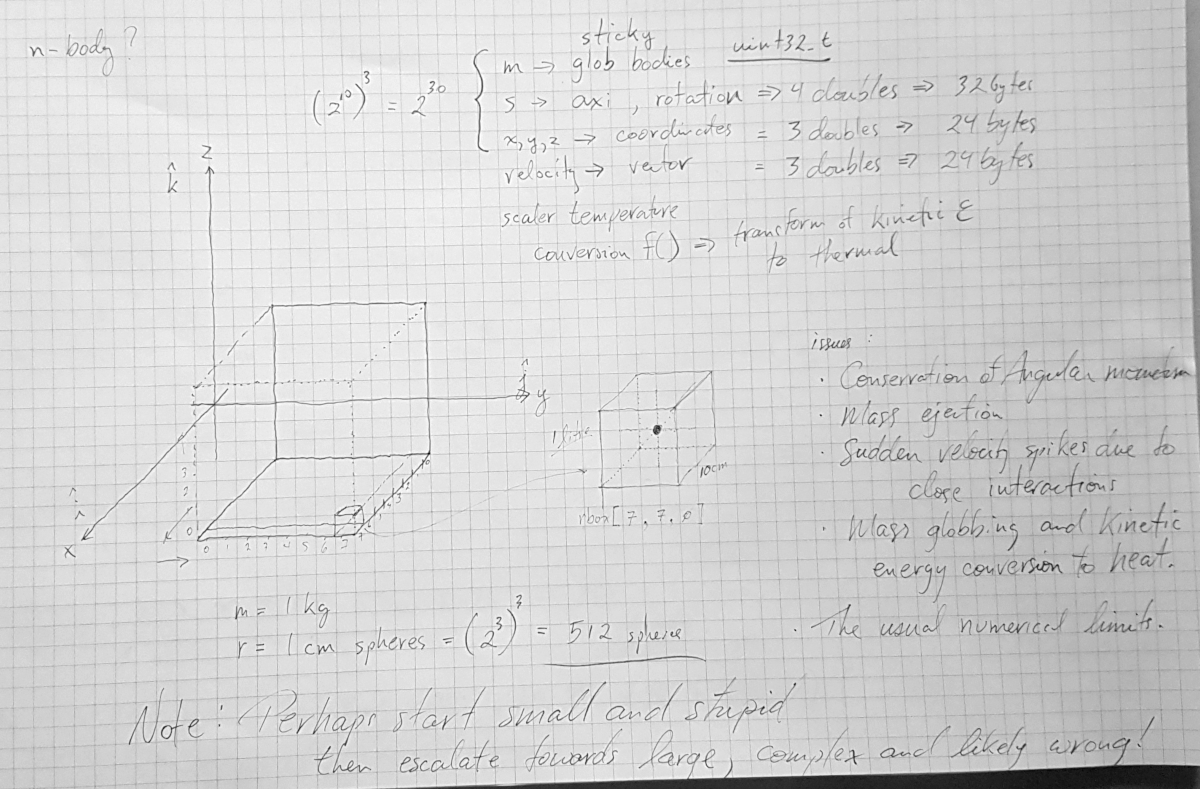 n-body?
(2^10)^3 = 2^30
sticky
m → glob bodies uint32_t
s → axi, rotation ⇒ 4 doubles ⇒ 32 bytes
x,y,z → coordinates = 3 doubles ⇒ 24 bytes
velocity → vector = 3 doubles ⇒ 24 bytes
scaler temperature
conversion f() ⇒ transform of kinetic E
to thermal
z
k̂
ĵ
y
î
x
0 1 2 3 4 5 6 7
0
1
2
3
10cm
rbox[7, 7, 0]
issues:
· Conservation of Angular momentum
· Mass ejection
· Sudden velocity spikes due to
close interactions
· Mass globbing and kinetic
energy conversion to heat.
· The usual numerical limits.
m = 1 kg
r = 1 cm spheres = (2^3)^3 = 512 sphere
Note: Perhaps start small and stupid
then escalate towards large, complex and likely wrong!